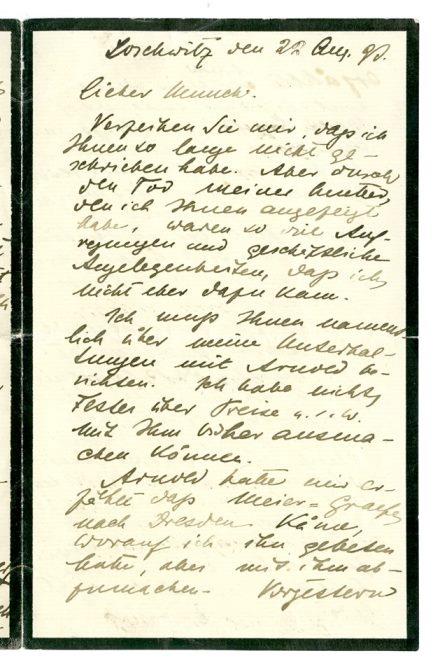 Loschwitz den 22 Aug.
Lieber Munch.
Verzeihen Sie mir, dass ich
Ihnen so lange nicht ge-
schrieben habe. Aber durch
den Tod meiner Mutter,
den ich Ihnen angezeigt
habe, waren so viel Auf-
regungen und geschäftliche
Angelegenheiten, dass ich
nicht eher dazu kam.
Ich muss Ihnen nament-
lich über meine Unterhal-
tungen mit Arnold be-
richten. Ich habe nichts
Festes über Preise u.s.w.
mit Ihm bisher ausma-
chen können.
Arnold hatte mir er-
zählt dass Meier=Graefe
nach Dresden käme,
worauf ich ihn gebeten
hatte, alles mit ihm ab-
zumachen. Vorgestern